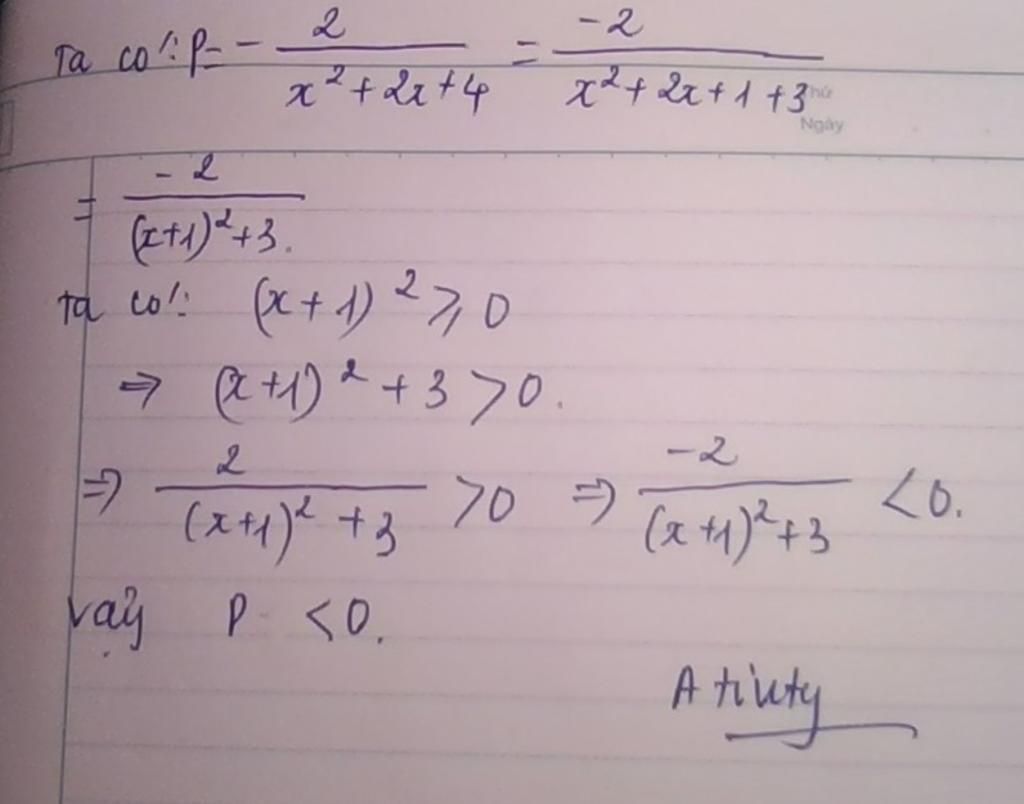 Ta có: P = - 2 / (x² + 2x + 4) = -2 / (x² + 2x + 1 + 3)
Thứ
Ngày
= -2 / ((x+1)² + 3).
Ta có: (x + 1)² ≥ 0
⇒ (x+1)² + 3 > 0.
⇒ 2 / ((x+1)² + 3) > 0 ⇒ -2 / ((x+1)² + 3) < 0.
Vậy P < 0.